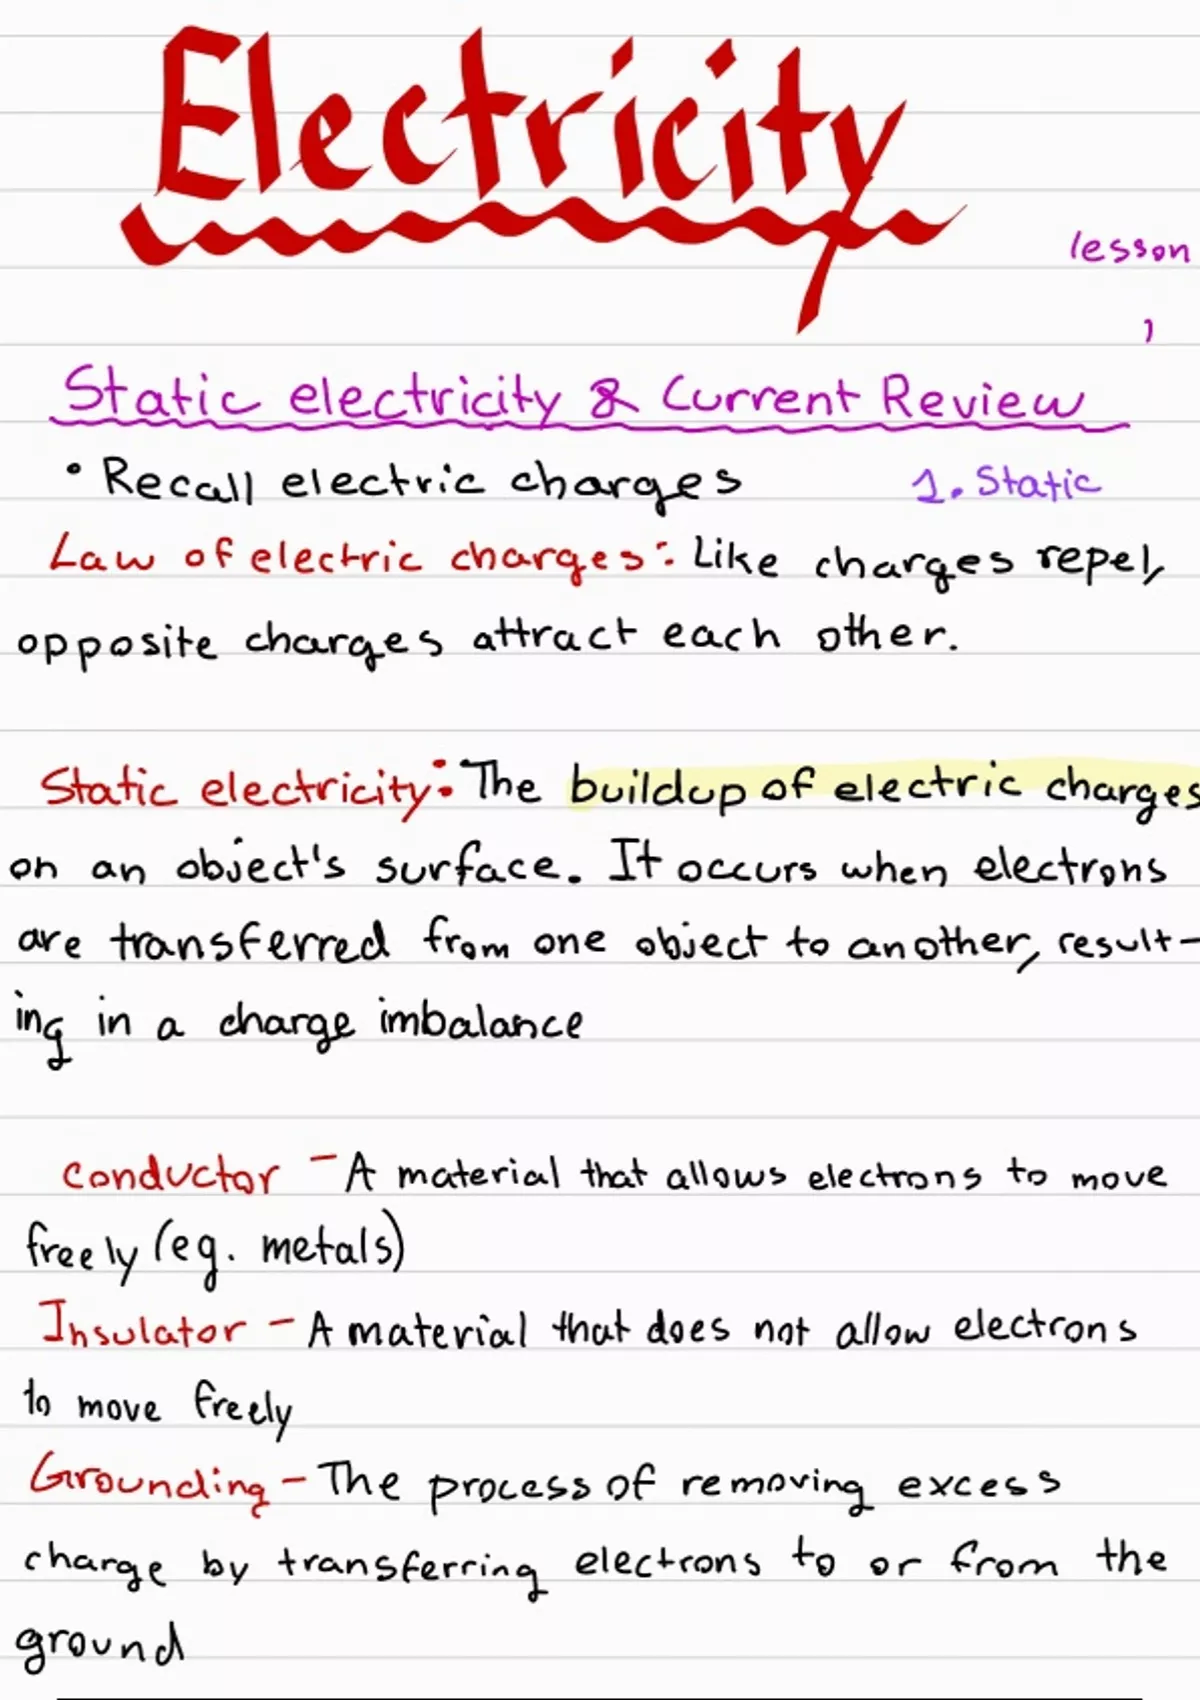 Electricity
lesson
1
Static electricity & Current Review
• Recall electric charges 1. Static
Law of electric charges: Like charges repel,
opposite charges attract each other.
Static electricity: The buildup of electric charges
on an object's surface. It occurs when electrons
are transferred from one object to another, result-
ing in a charge imbalance
conductor - A material that allows electrons to move
freely (eg. metals)
Insulator - A material that does not allow electrons
to move freely
Grounding - The process of removing excess
charge by transferring electrons to or from the
ground